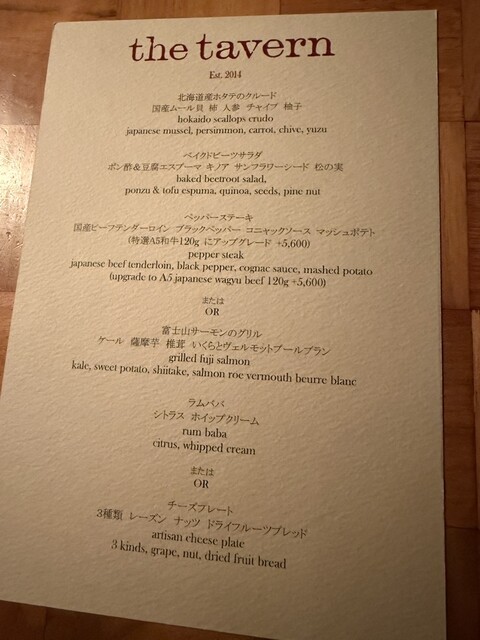 the tavern
Est. 2014
北海道産ホタテのクルード
国産ムール貝 柿 人参 チャイブ 柚子
hokaido scallops crudo
japanese mussel, persimmon, carrot, chive, yuzu
ベイクドビーツサラダ
ポン酢&豆腐エスプーマ キノア サンフラワーシード 松の実
baked beetroot salad,
ponzu & tofu espuma, quinoa, seeds, pine nut
ペッパーステーキ
国産ビーフテンダーロイン ブラックペッパー コニャックソース マッシュポテト
(特選A5和牛120g にアップグレード +5,600)
pepper steak
japanese beef tenderloin, black pepper, cognac sauce, mashed potato
(upgrade to A5 japanese wagyu beef 120g +5,600)
または
OR
富士山サーモンのグリル
ケール 薩摩芋 椎茸 いくらとヴェルモットブールブラン
grilled fuji salmon
kale, sweet potato, shiitake, salmon roe vermouth beurre blanc
ラムババ
シトラス ホイップクリーム
rum baba
citrus, whipped cream
または
OR
チーズプレート
3種類 レーズン ナッツ ドライフルーツブレッド
artisan cheese plate
3 kinds, grape, nut, dried fruit bread